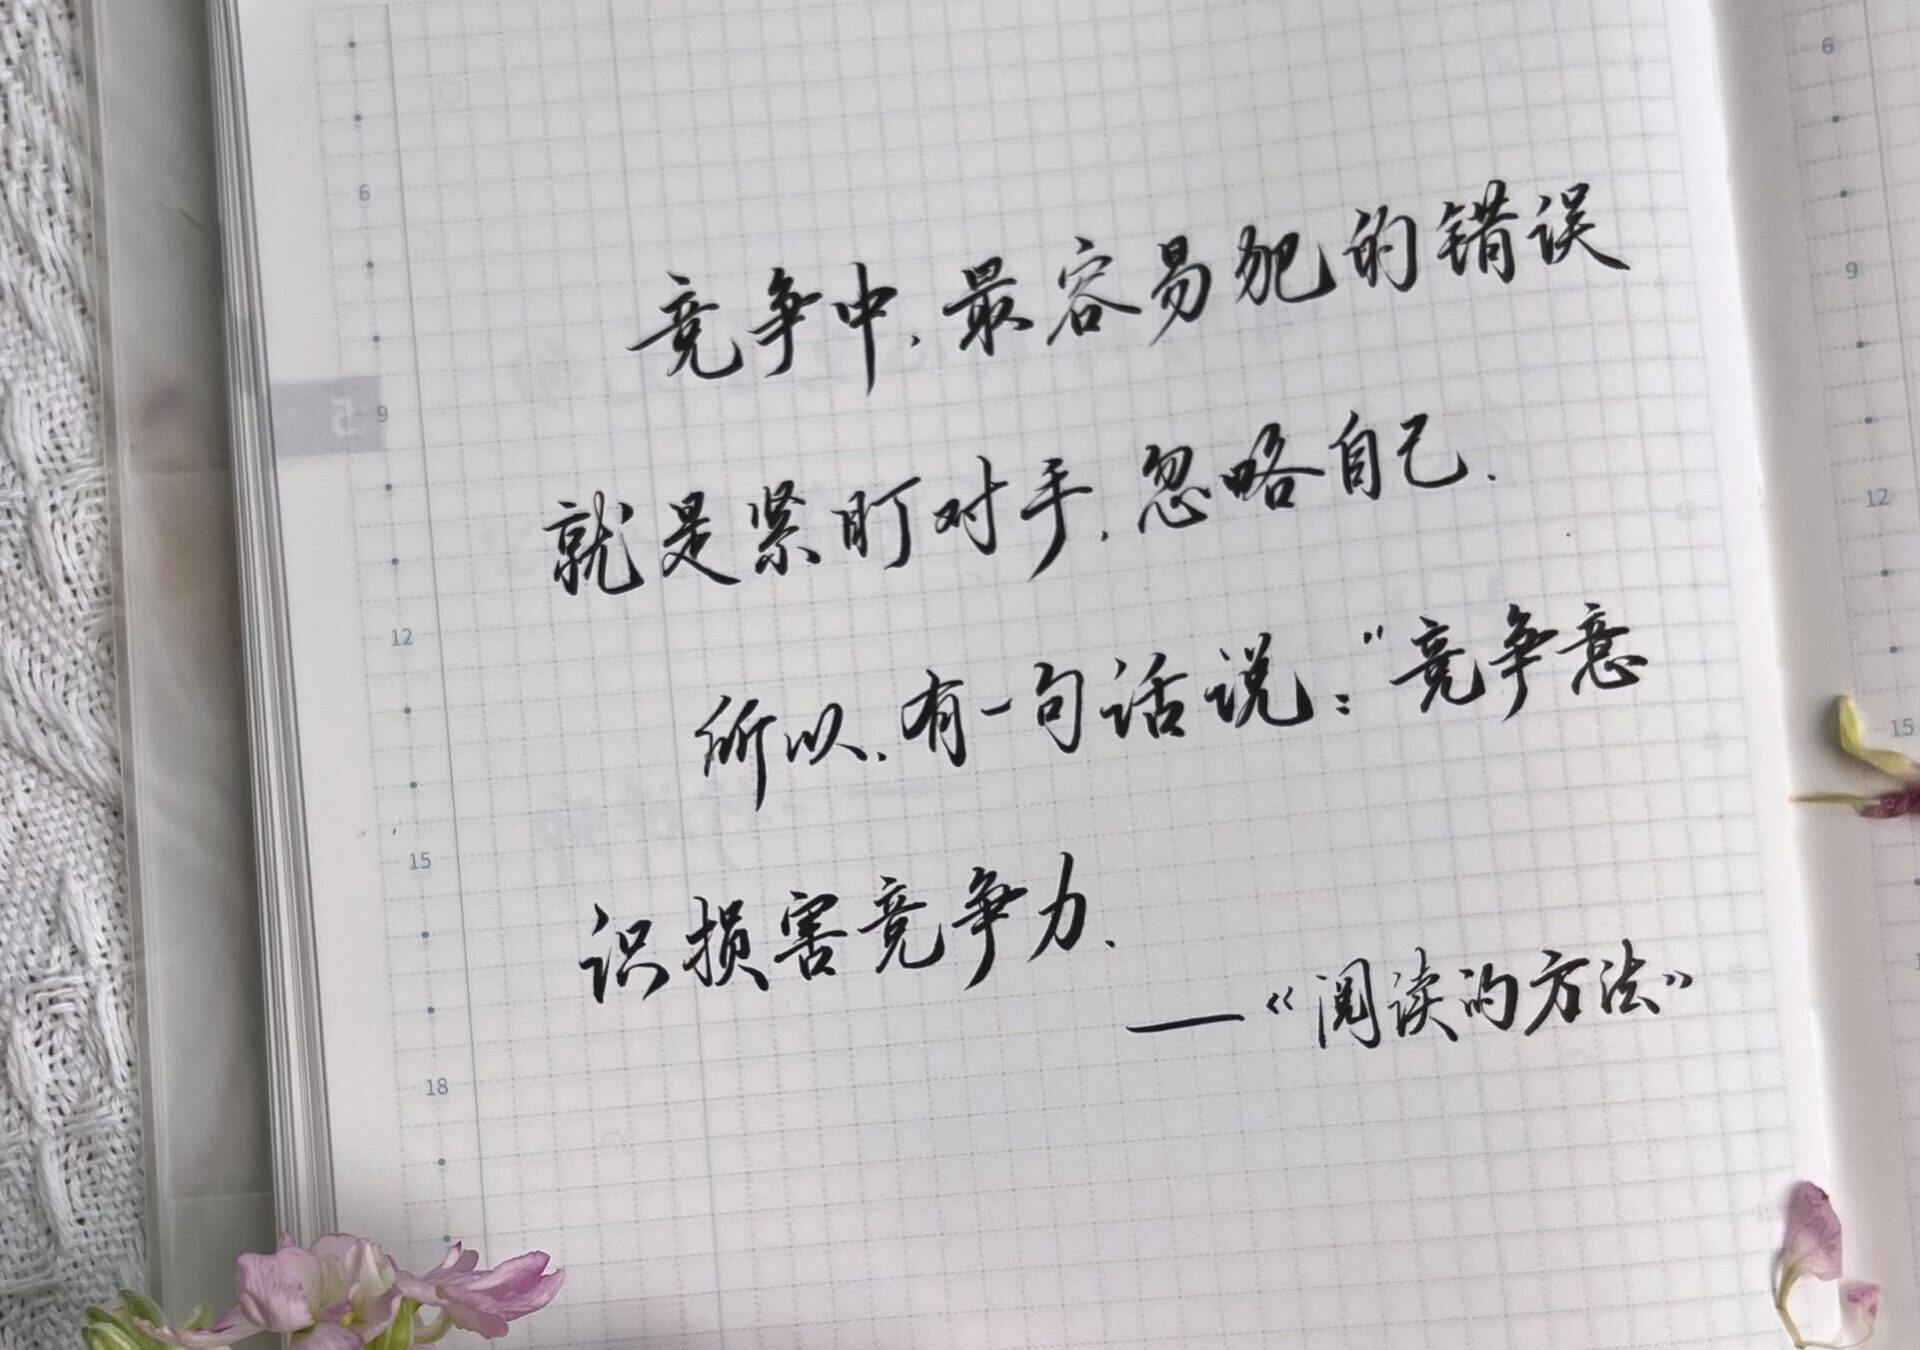 6
9
5
12
15
18
竞争中,最容易犯的错误
就是紧盯对手,忽略自己.
所以,有一句话说:"竞争意
识损害竞争力.
—《阅读的方法》
6
9
12
15